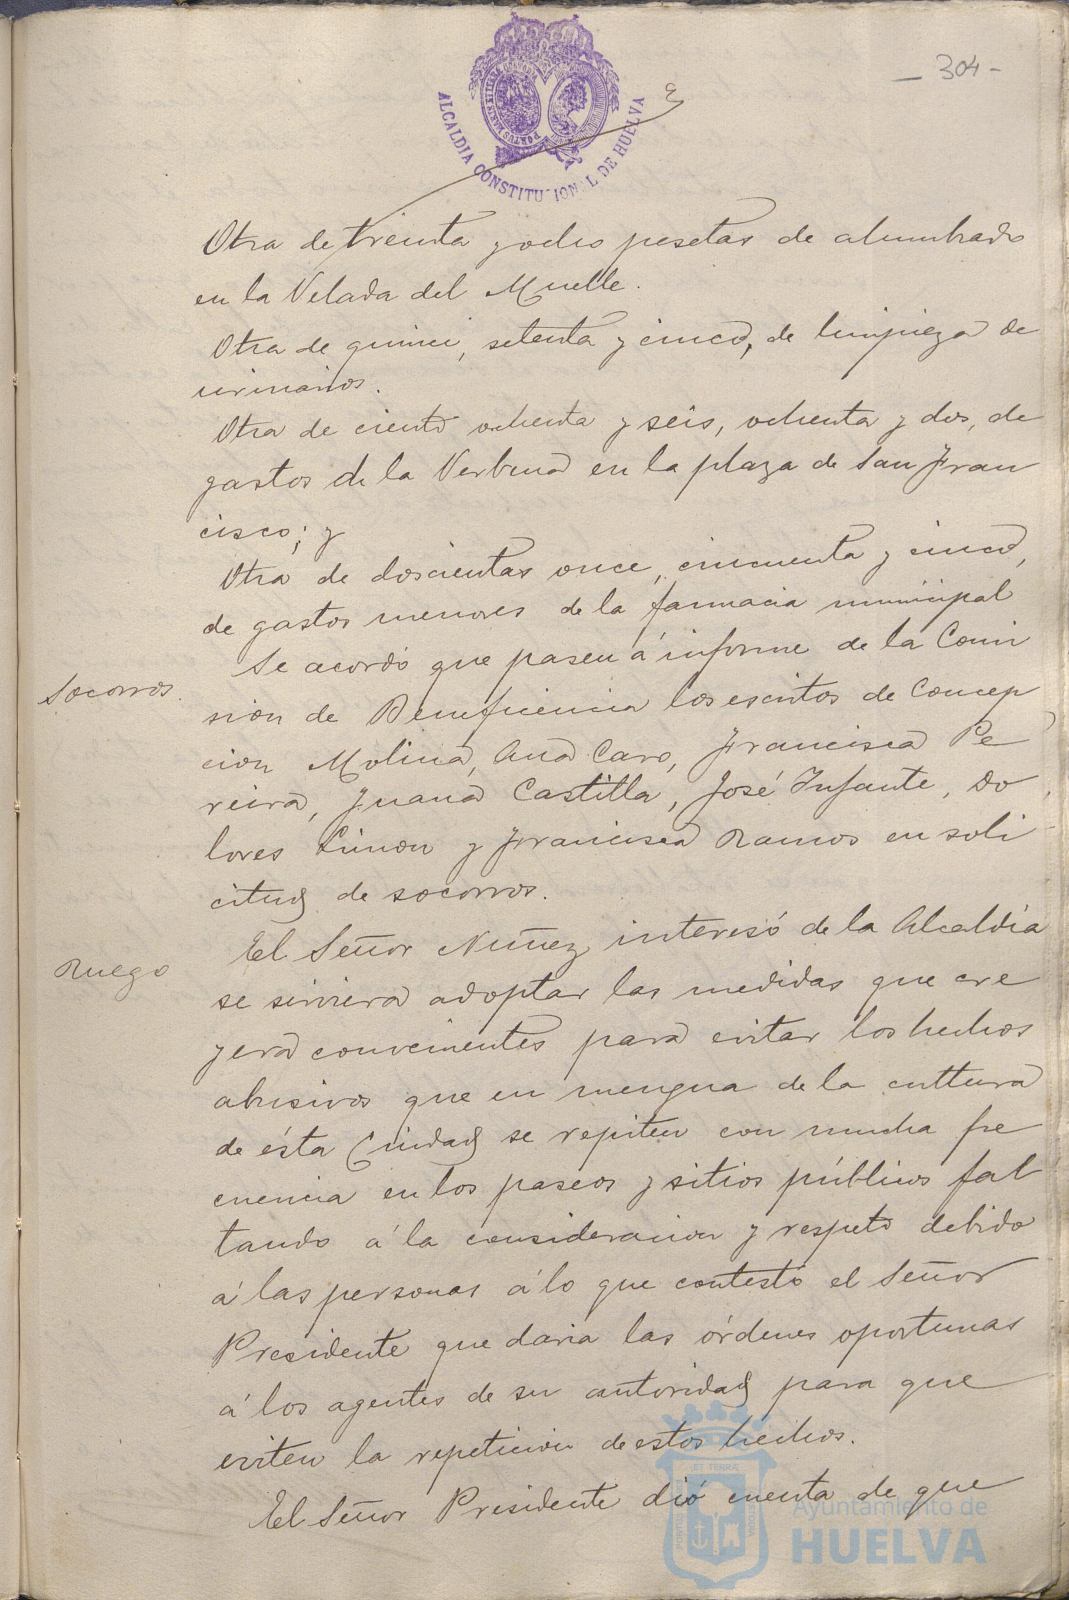 - 304 -
ALCALDIA CONSTITUCIONAL DE HUELVA
Otra de treinta y ocho pesetas de alumbrado
en la Velada del Muelle.
Otra de quince, setenta y cinco, de limpieza de
urinarios.
Otra de ciento ochenta y seis, ochenta y dos, de
gastos de la Verbena en la plaza de San Fran
cisco; y
Otra de doscientas once, cincuenta y cinco,
de gastos menores de la farmacia municipal
Socorros.
Se acordó que pasen á informe de la Comi
sion de Beneficencia los escritos de Concep
cion Molina, Ana Caro, Francisca Pe
reira, Juana Castilla, José Infante, Do
lores Limon y Francisca Ramos en soli
citud de socorros.
Ruego
El Señor Nuñez interesó de la Alcaldía
se sirviera adoptar las medidas que cre
yera convenientes para evitar los hechos
abusivos que en mengua de la cultura
de ésta Ciudad se repiten con mucha fre
cuencia en los paseos y sitios públicos fal
tando á la consideracion y respeto debido
á las personas á lo que contestó el Señor
Presidente que daria las órdenes oportunas
á los agentes de su autoridad para que
eviten la repeticion de estos hechos.
El Señor Presidente dió cuenta de que
Ayuntamiento de
HUELVA